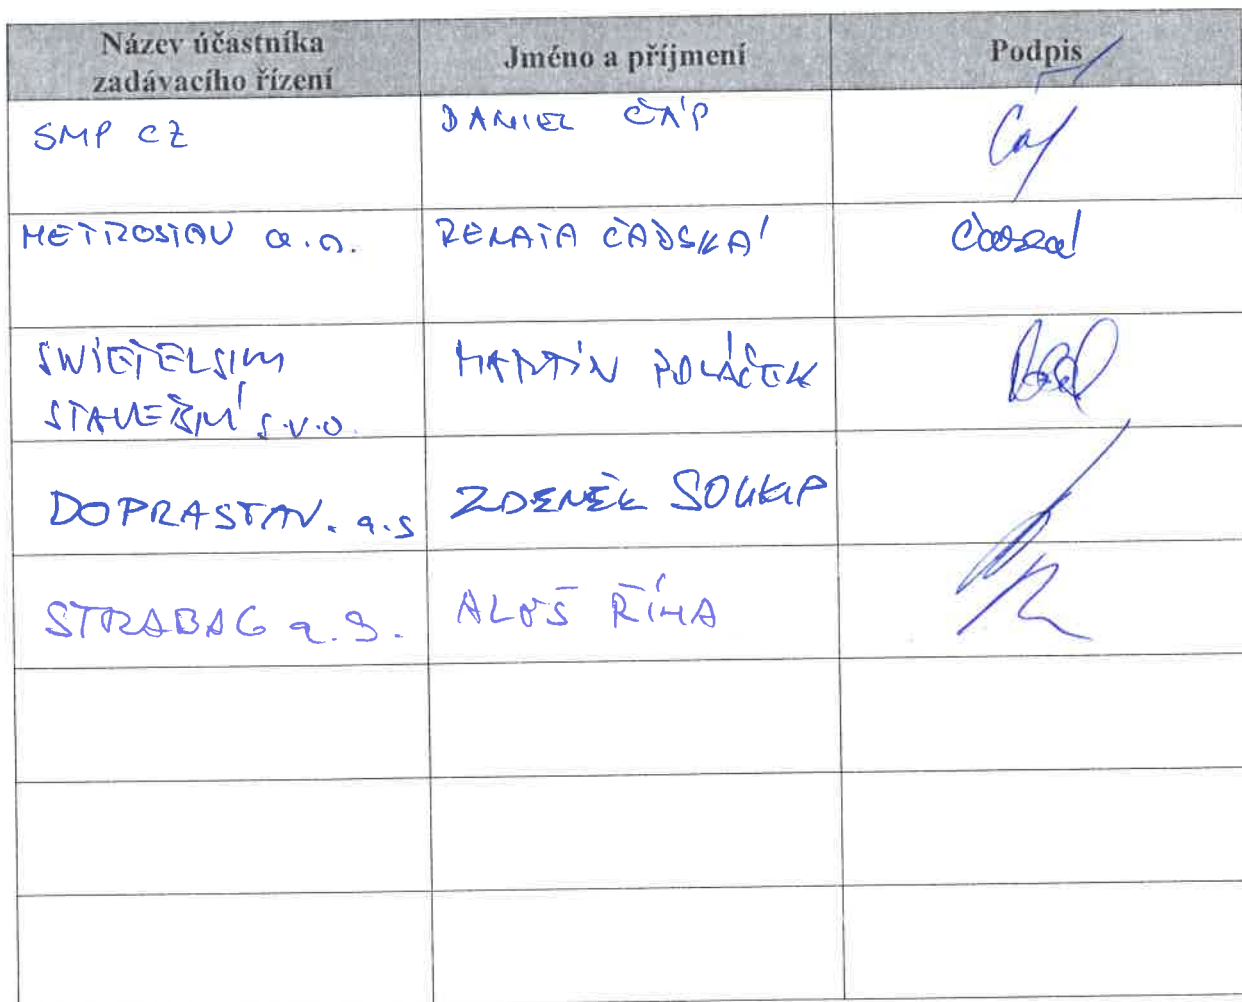 Název účastníka
zadávacího řízení
Jméno a příjmení
Podpis
SMP CZ
DANIEL ČÁP
Čáp
METROSTAV a.s.
RENATA ČADSKÁ
SWIETELSKY
STAVEBNÍ s.r.o.
MARTIN POLÁČEK
DOPRASTAV. a.s
ZDENĚK SOUKUP
STRABAG a.s.
ALEŠ ŘÍHA